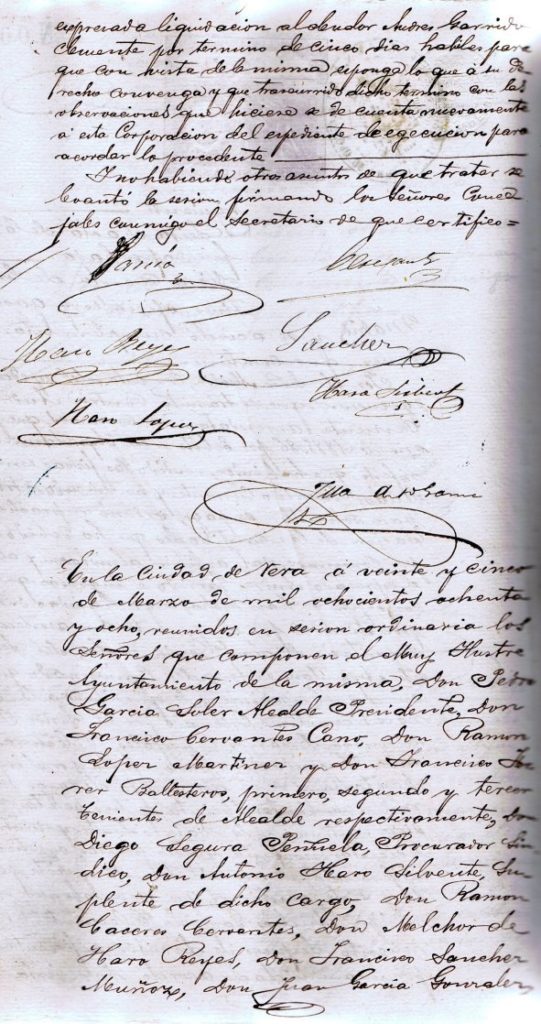 expresada liquidacion al deudor Andres Garrido
Clemente por término de cinco dias habiles para
que con vista de la misma esponga lo que á su de
recho convenga y que transcurrido dicho termino con las
observaciones que hiciere se de cuenta nuevamente
á esta Corporacion del espediente de egecucion para
acordar lo procedente
Y no habiendo otros asuntos de que tratar se
levantó la sesion firmando los Señores Conce
jales conmigo el Secretario de que certifico=
Garcia
Cervantes
Haro Reyes
Sanchez
Haro Silvent
Haro Lopez
En la Ciudad de Vera á veinte y cinco
de Marzo de mil ochocientos ochenta
y ocho, reunidos en sesion ordinaria los
Señores que componen el Muy Ilustre
Ayuntamiento de la misma, Don Pedro
Garcia Soler Alcalde Presidente, Don
Francisco Cervantes Cano, Don Ramon
Lopez Martinez y Don Francisco
Ballesteros, primero, segundo y tercer
Tenientes de Alcalde respectivamente, Don
Diego Segura Peñuela, Procurador Sin
dico, Don Antonio Haro Silvente, Su
plente de dicho cargo, Don Ramon
Caceres Cervantes, Don Melchor de
Haro Reyes, Don Francisco Sanchez
Muñoz, Don Juan Garcia Gonzalez,